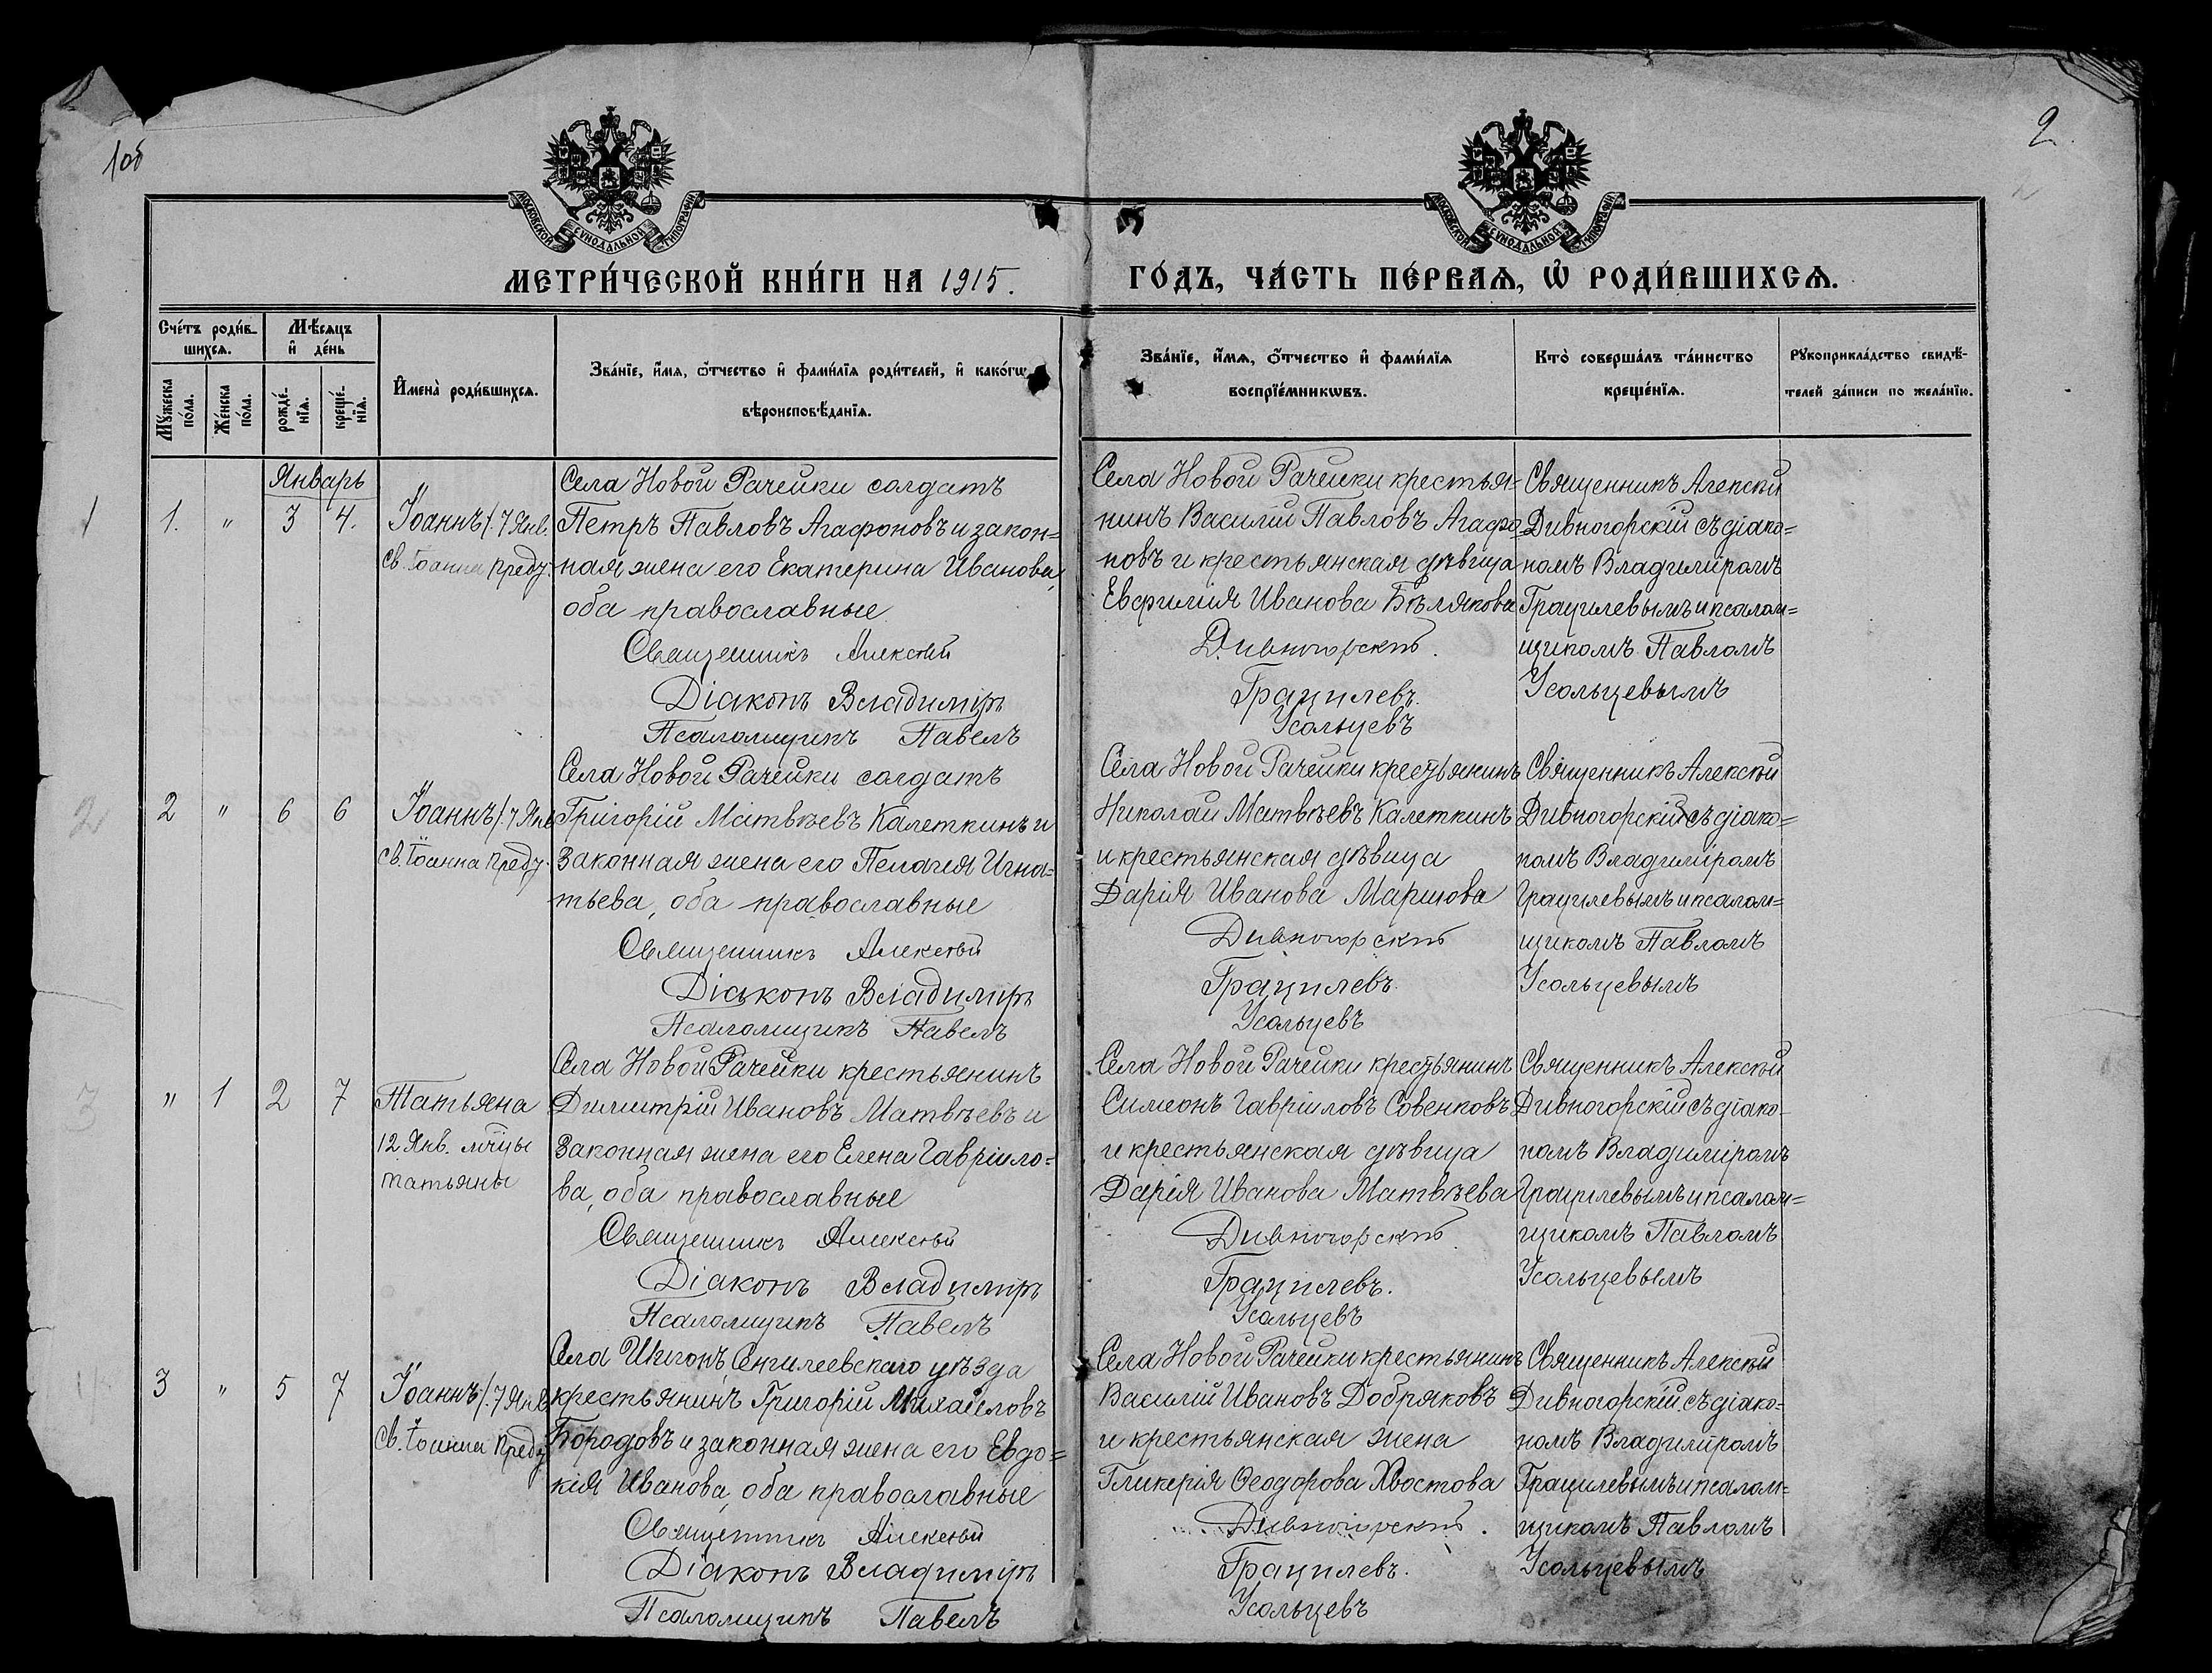 1об
2
МОСКОВСКОЙ СѴНОДАЛЬНОЙ ТИПОГРАФІИ
МОСКОВСКОЙ СѴНОДАЛЬНОЙ ТИПОГРАФІИ
МЕТРИ́ЧЕСКОЙ КНИ́ГИ НА 1915.
ГО́ДЪ, ЧА́СТЬ ПЕ́РВАѦ, Ѽ РОДИ́ВШИХСѦ.
Сче́тъ роди́в-
шихсѧ.
Мѣ́сѧцъ
и҆ де́нь
Мꙋ́жеска
по́ла.
Же́нска
по́ла.
рожде́-
нїѧ.
креще́-
нїѧ.
И҆мена̀ роди́вшихсѧ.
Зва́нїе, и҆́мѧ, ѻ҆́тчество и҆ фами́лїѧ роди́телей, и҆ како́гѡ
вѣроисповѣ́данїѧ.
Зва́нїе, и҆́мѧ, ѻ҆́тчество и҆ фами́лїѧ
воспрїе́мникѡвъ.
Кто̀ соверша́лъ та́инство
креще́нїѧ.
Рꙋкоприкла́дство свидѣ́-
телей за́писи по жела́нїю.
Январь
1
1.
"
3
4.
Іоаннъ/.7 Янв.
св. Іоанна Предт.
Села Новой Рачейки солдатъ
Петръ Павловъ Агафоновъ и закон=
ная жена его Екатерина Иванова,
оба православные
Священникъ Алексѣй
Діаконъ Владиміръ
Псаломщикъ Павелъ
Села Новой Рачейки крестья-
нинъ Василій Павловъ Агафо-
новъ и крестьянская дѣвица
Евфимія Иванова Бѣлякова
Дивногорскій.
Грацилевъ.
Усольцевъ
Священникъ Алексѣй
Дивногорскій съ діако=
номъ Владиміромъ
Грацилевымъ и псалом=
щикомъ Павломъ
Усольцевымъ
2
2
"
6
6
Іоаннъ/.7 Янв
св. Іоанна Предт.
Села Новой Рачейки солдатъ
Григорій Матвѣевъ Калеткинъ и
законная жена его Пелагія Игна=
тьева, оба православные
Священникъ Алексѣй
Діаконъ Владиміръ
Псаломщикъ Павелъ
Села Новой Рачейки крестьянинъ
Николай Матвѣевъ Калеткинъ
и крестьянская дѣвица
Дарія Иванова Маршова
Дивногорскій
Грацилевъ.
Усольцевъ
Священникъ Алексѣй
Дивногорскій съ діако=
номъ Владиміромъ
Грацилевымъ и псалом=
щикомъ Павломъ
Усольцевымъ
3
"
1
2
7
Татьяна
12 Янв. мчцы
Татьяны
Села Новой Рачейки крестьянинъ
Димитрій Ивановъ Матвѣевъ и
законная жена его Елена Гавріило=
ва, оба православные
Священникъ Алексѣй
Діаконъ Владиміръ
Псаломщикъ Павелъ
Села Новой Рачейки крестьянинъ
Симеонъ Гавріиловъ Совенковъ
и крестьянская дѣвица
Дарія Иванова Матвѣева
Дивногорскій.
Грацилевъ.
Усольцевъ
Священникъ Алексѣй
Дивногорскій съ діако-
номъ Владиміромъ
Грацилевымъ и псалом=
щикомъ Павломъ
Усольцевымъ
3
"
5
7
Іоаннъ/.7 Янв
св. Іоанна Предт
Села Шигонъ, Сенгилеевскаго уѣзда
крестьянинъ Григорій Михайловъ
Бородовъ и законная жена его Евдо=
кія Иванова, оба православные
Священникъ Алексѣй
Діаконъ Владиміръ
Псаломщикъ Павелъ
Села Новой Рачейки крестьянинъ
Василій Ивановъ Добряковъ
и крестьянская жена
Гликерія Ѳеодорова Хвостова
Дивногорскій.
Грацилевъ.
Усольцевъ
Священникъ Алексѣй
Дивногорскій съ діако=
номъ Владиміромъ
Грацилевымъ и псалом=
щикомъ Павломъ
Усольцевымъ